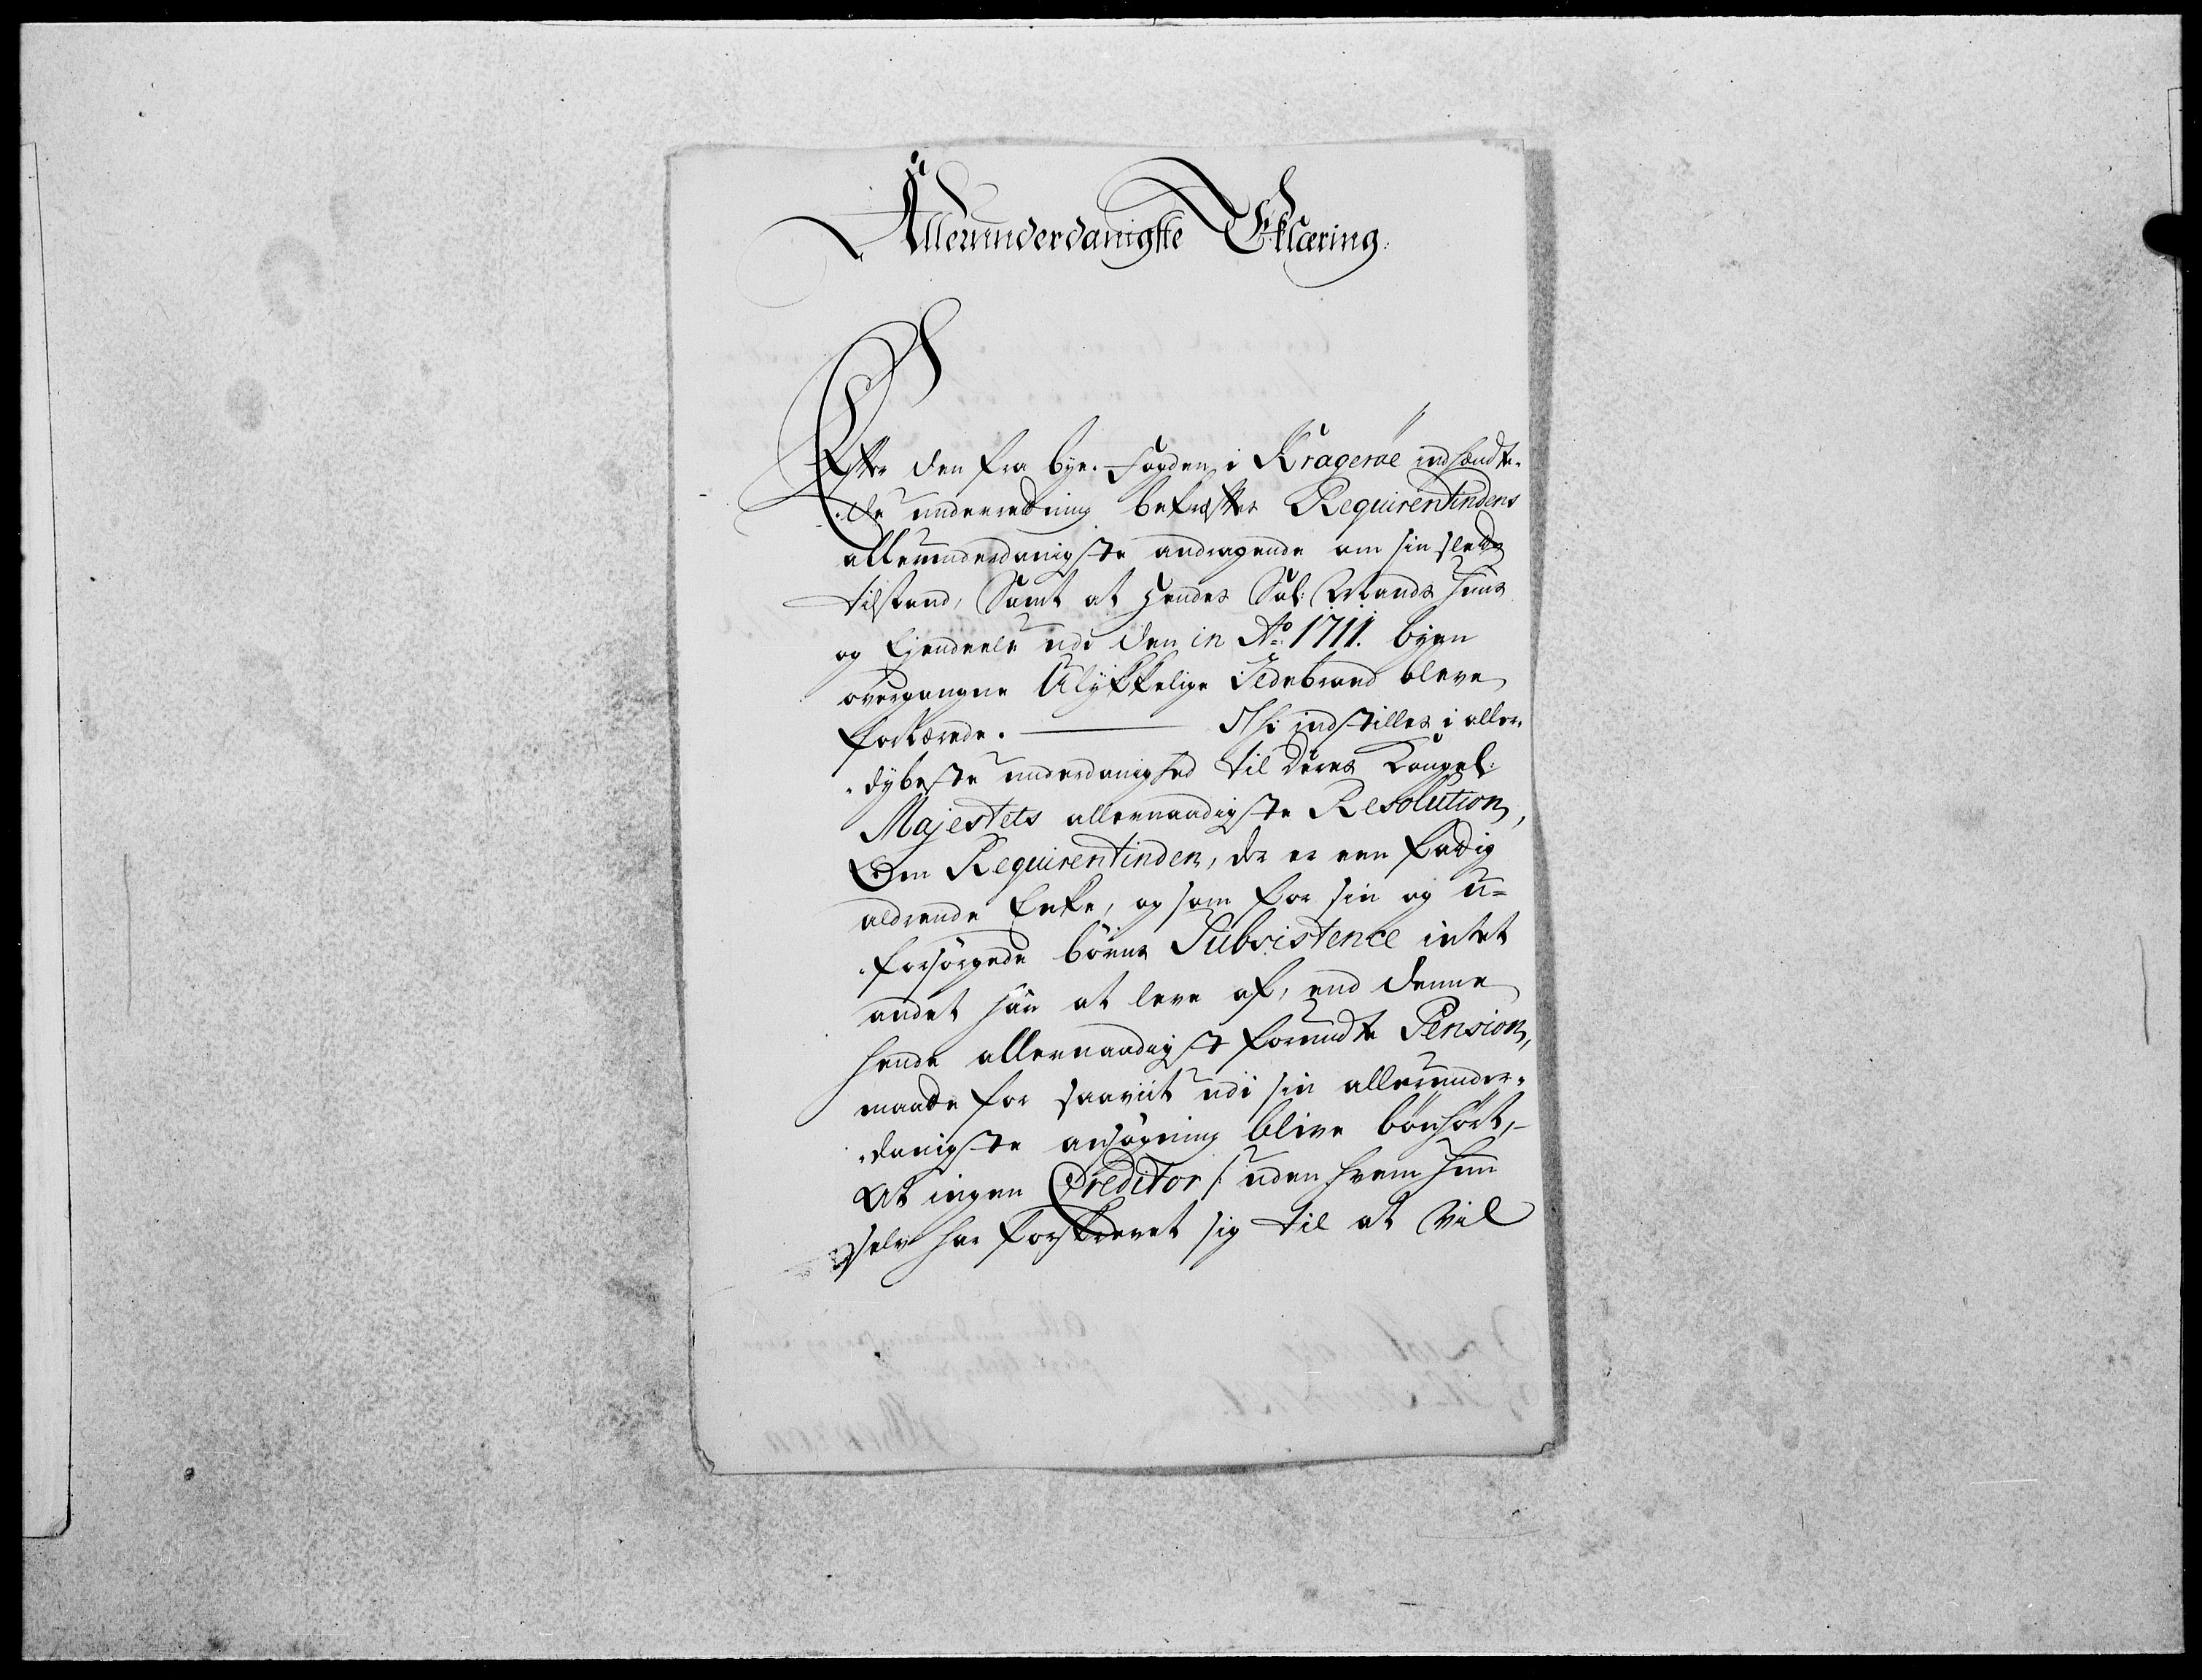 Allerunderdanigste Erklæring.
Efter den fra bye-fogden i Kragerøe indhændte-
de underretning befæstes Requirentindens
allerunderdanigste andragende om sin slette
tilstand, Samt at hendes Sal: Mands huus
og Ejendeele udi den in Ao: 1711. byen
overgangne Ulykkelige Ildebrand bleve
fortærede. indstilles i aller-
dybeste underdanighed til Deres Kongel:
Majestets allernaadigste Resolution,
Om Requirentinden, der er een fattig
aldrende Enke, og som for sin og u-
forsørgede børns Subsistence intet
andet har at leve af, end denne
hende allernaadigst forundte Pension,
maatte for saaviit udi sin allerunder-
danigste ansøgning blive bønhørt,
At ingen Creditor /: uden hvem hun
selv har forskrevet sig til at vil